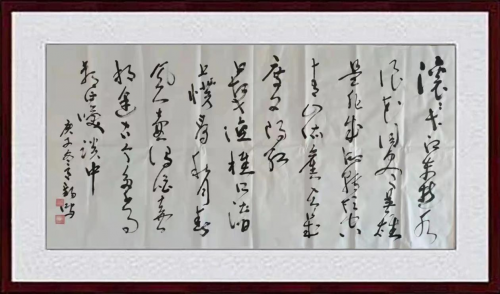 滚々长江东逝水
浪花淘尽英雄
是非成败转头空
青山依旧在几
度夕阳红
白发渔樵江渚
上惯看秋月春
风一壶浊酒喜
相逢古今多少事
都付笑谈中
庚子冬